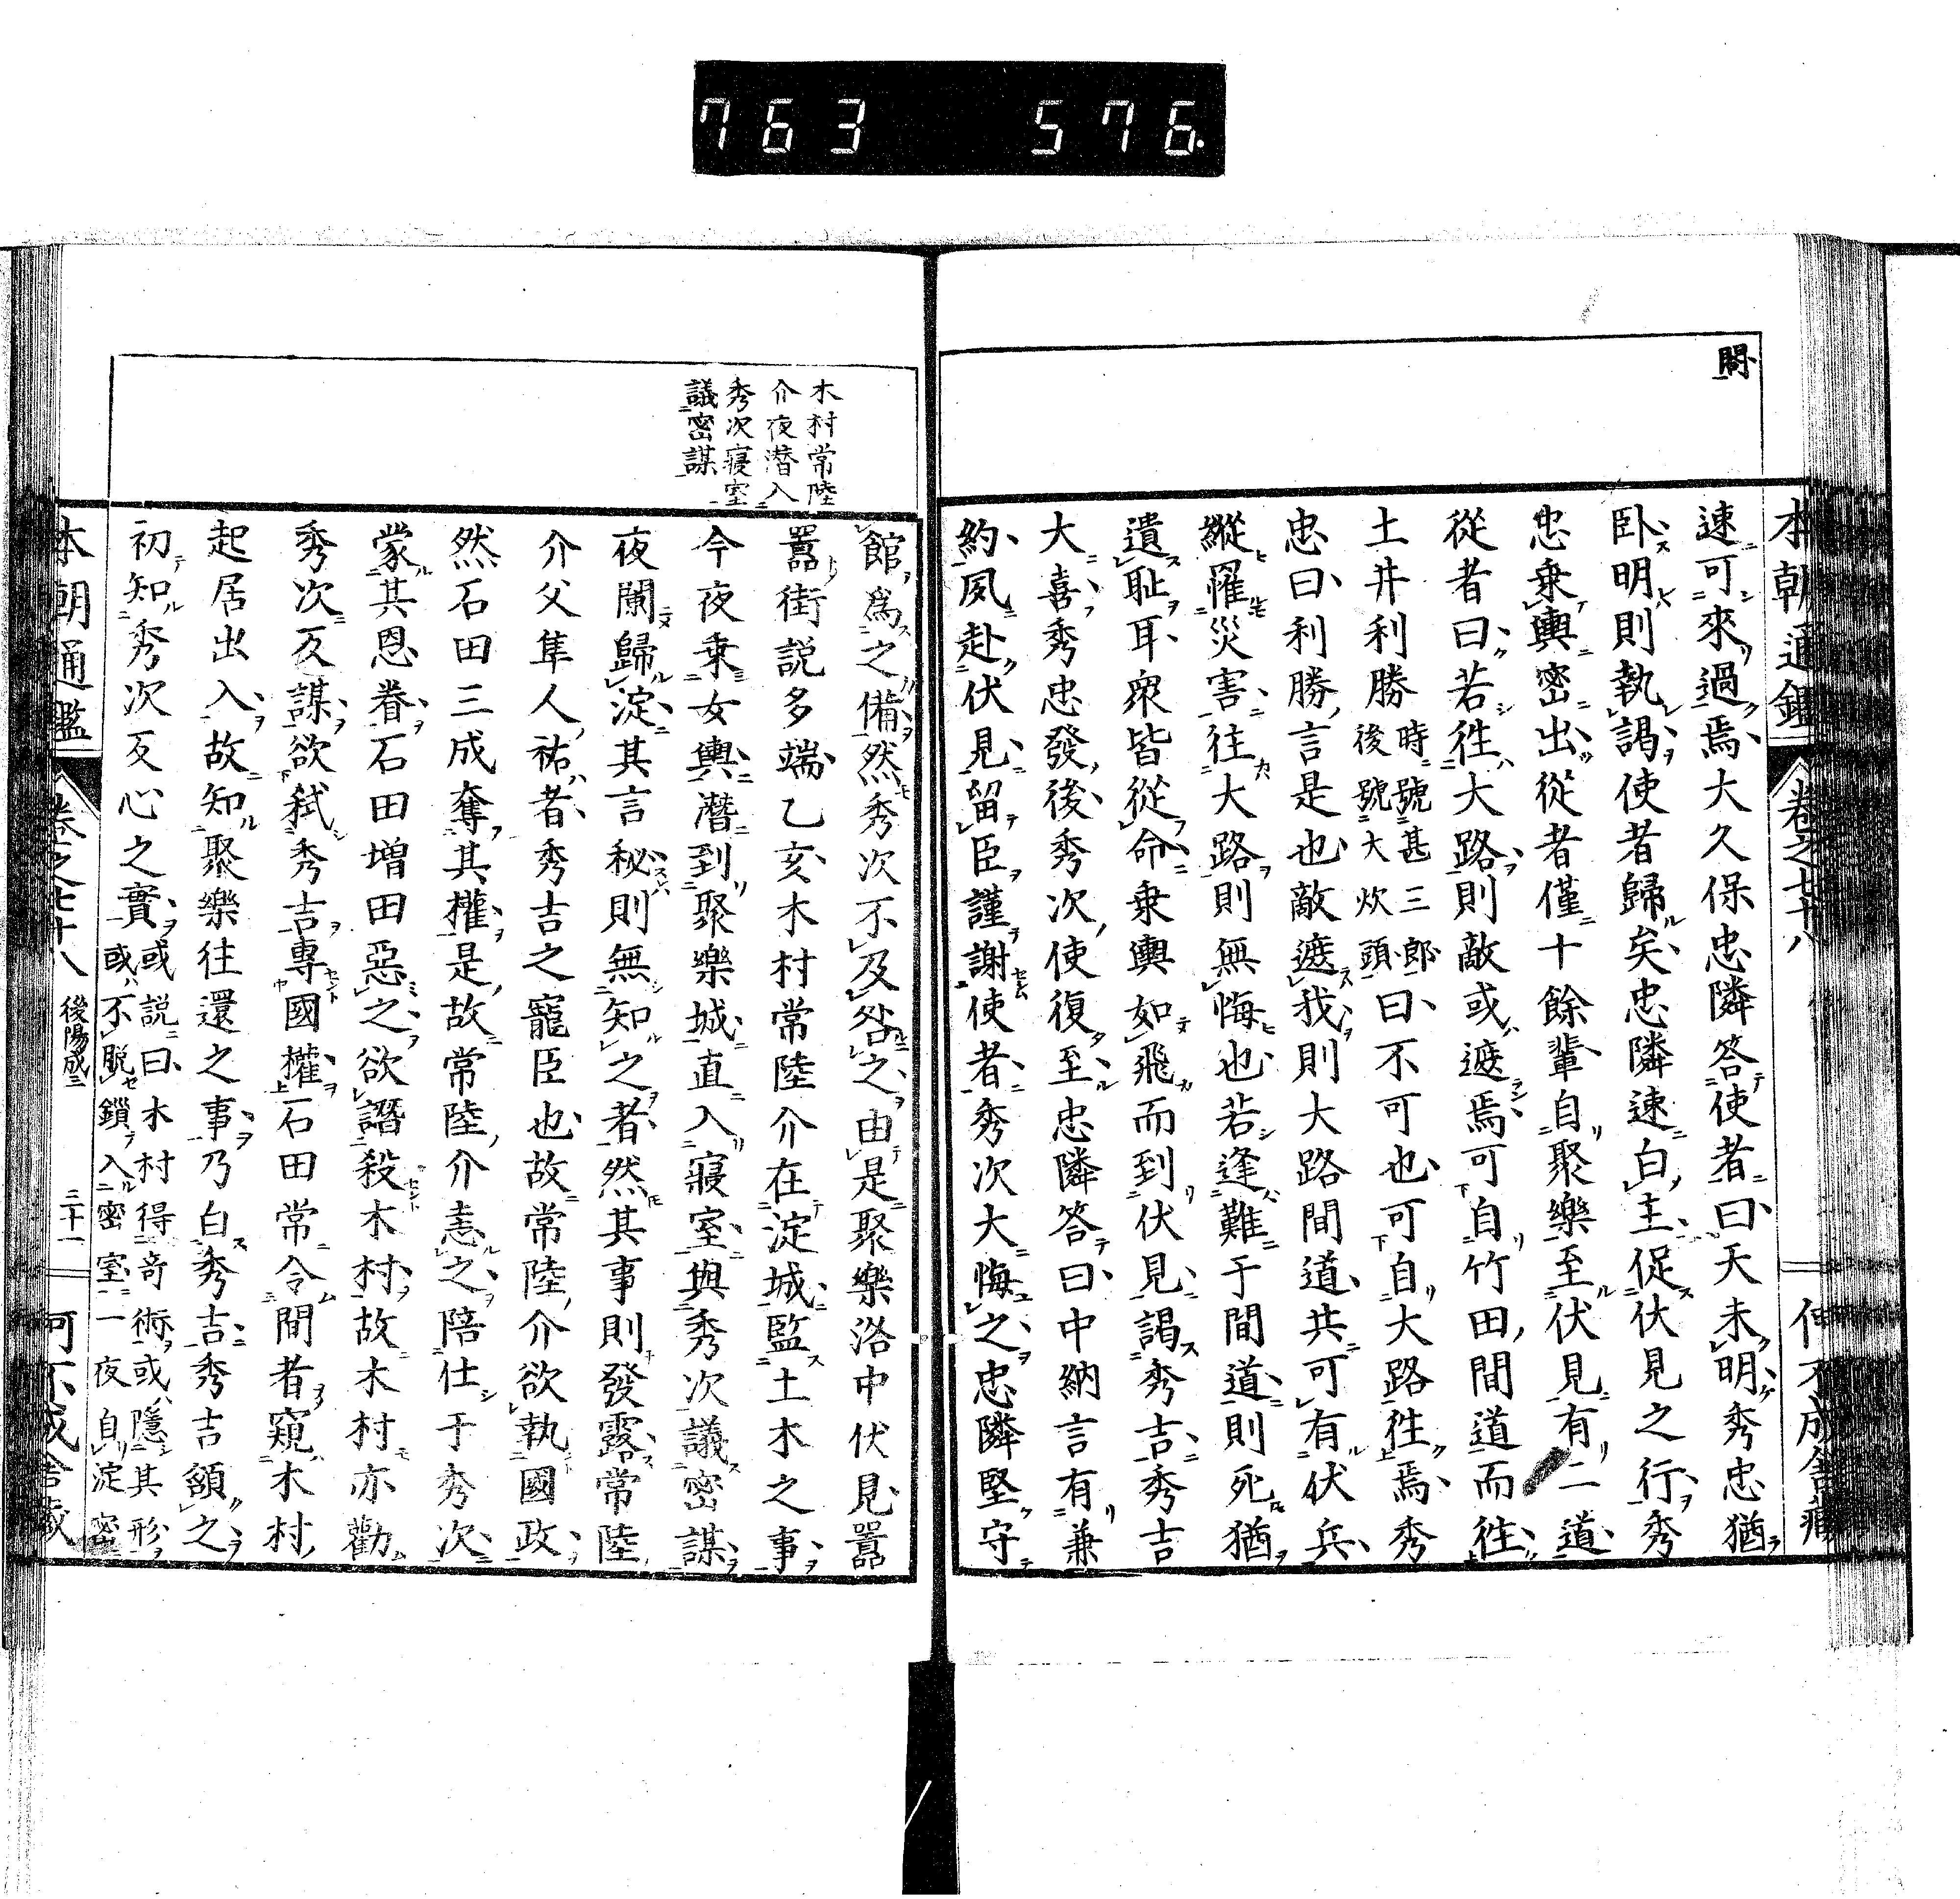 763 576.
間
本朝通鑑 卷之七十八
速可來過焉大久保忠隣答使者曰天未明秀忠猶
臥明則執謁使者歸矣忠隣速白主促伏見之行秀
忠乗輿密出從者僅十餘輩自聚樂至伏見有二道
從者曰若徃大路則敵或遮焉可自竹田間道而徃
土井利勝時號甚三郎後號大炊頭曰不可也可自大路徃焉秀
忠曰利勝言是也敵遮我則大路間道共可有伏兵
縱罹災害往大路則無悔也若逢難于間道則死猶
遺耻耳衆皆從命乗輿如飛而到伏見謁秀吉秀吉
大喜秀忠發後秀次使復至忠隣答曰中納言有兼
約夙赴伏見留臣謹謝使者秀次大悔之忠隣堅守
木村常陸
介夜潜入
秀次寝室
議密謀
館爲之備然秀次不及咎之由是聚樂洛中伏見囂
囂街説多端乙亥木村常陸介在淀城監土木之事
今夜乗女輿潛到聚樂城直入寢室與秀次議密謀
夜闌歸淀其言秘則無知之者然其事則發露常陸
介父隼人祐者秀吉之寵臣也故常陸介欲執國政
然石田三成奪其權是故常陸介恚之陪仕于秀次
蒙其恩眷石田増田惡之欲譖殺木村故木村亦勸
秀次反謀欲弑秀吉專國權石田常令間者窺木村
起居出入故知聚樂往還之事乃白秀吉秀吉額之
初知秀次反心之實或説曰木村得竒術或隱其形或不脱鎖入密室一夜自淀密
本朝通鑑 卷之七十八 後陽成三 三十一